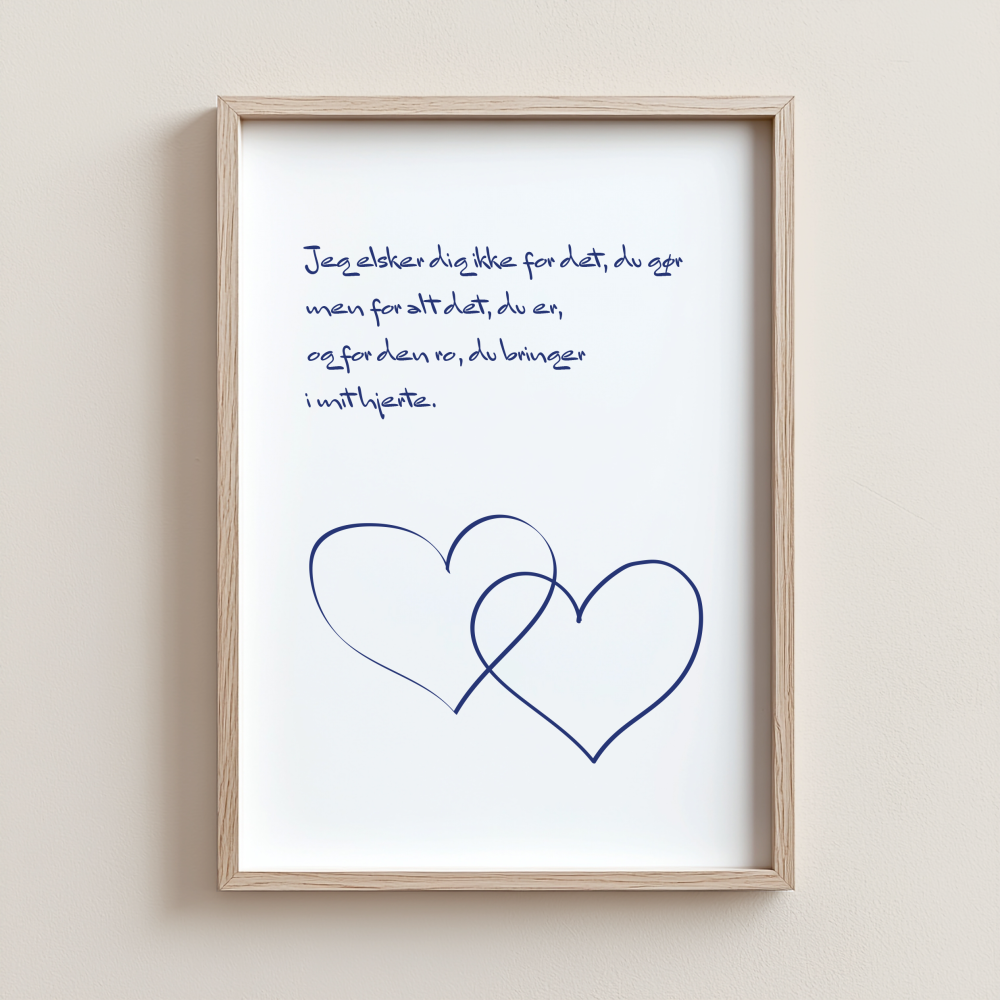 Jeg elsker dig ikke for det, du gør
men for alt det, du er,
og for den ro, du bringer
i mit hjerte.